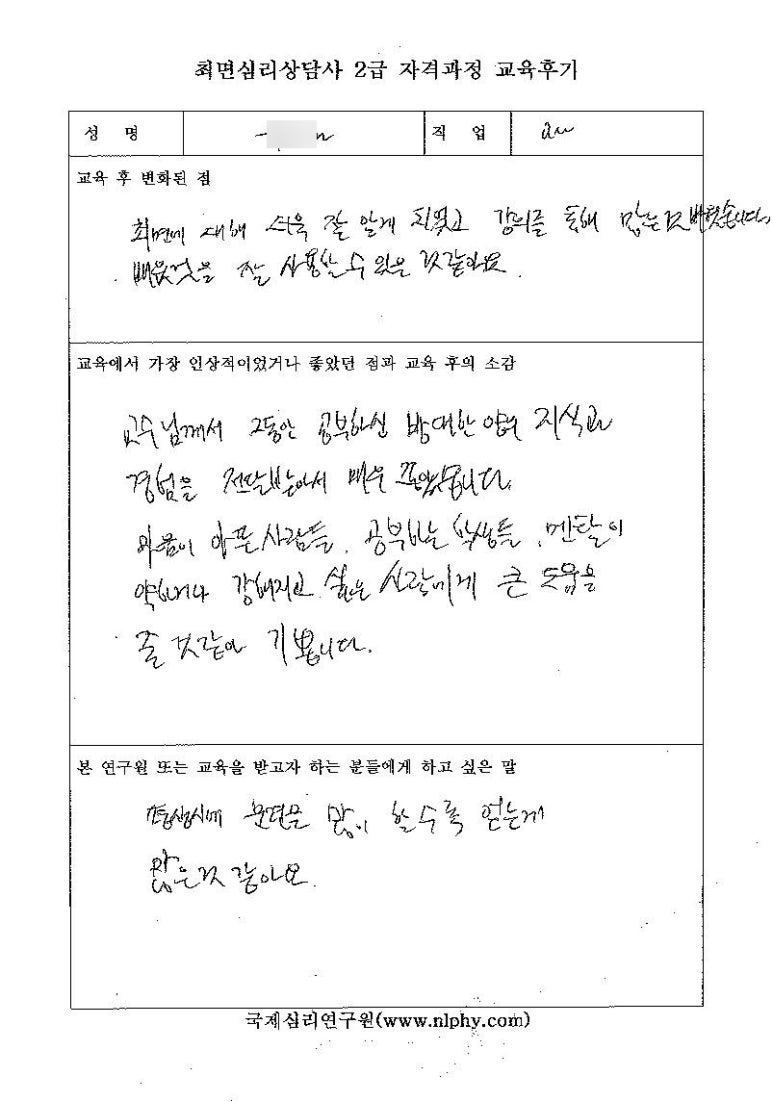 최면심리상담사 2급 자격과정 교육후기
성 명
직 업
교육 후 변화된 점
최면에 대해 더욱 잘 알게 되었고 강의를 통해 많은것 배웠습니다.
배운것을 잘 사용할 수 있을 것 같아요.
교육에서 가장 인상적이었거나 좋았던 점과 교육 후의 소감
교수님께서 그동안 공부하신 방대한 양의 지식과
경험을 전달받아서 매우 좋았습니다.
마음이 아픈 사람들, 공부하는 학생들, 멘탈이
약하거나 강해지고 싶은 사람에게 큰 도움을
줄 것 같아 기쁩니다.
본 연구원 또는 교육을 받고자 하는 분들에게 하고 싶은 말
많이 할수록 얻는게
많은것 같아요.
국제심리연구원(www.nlphy.com)